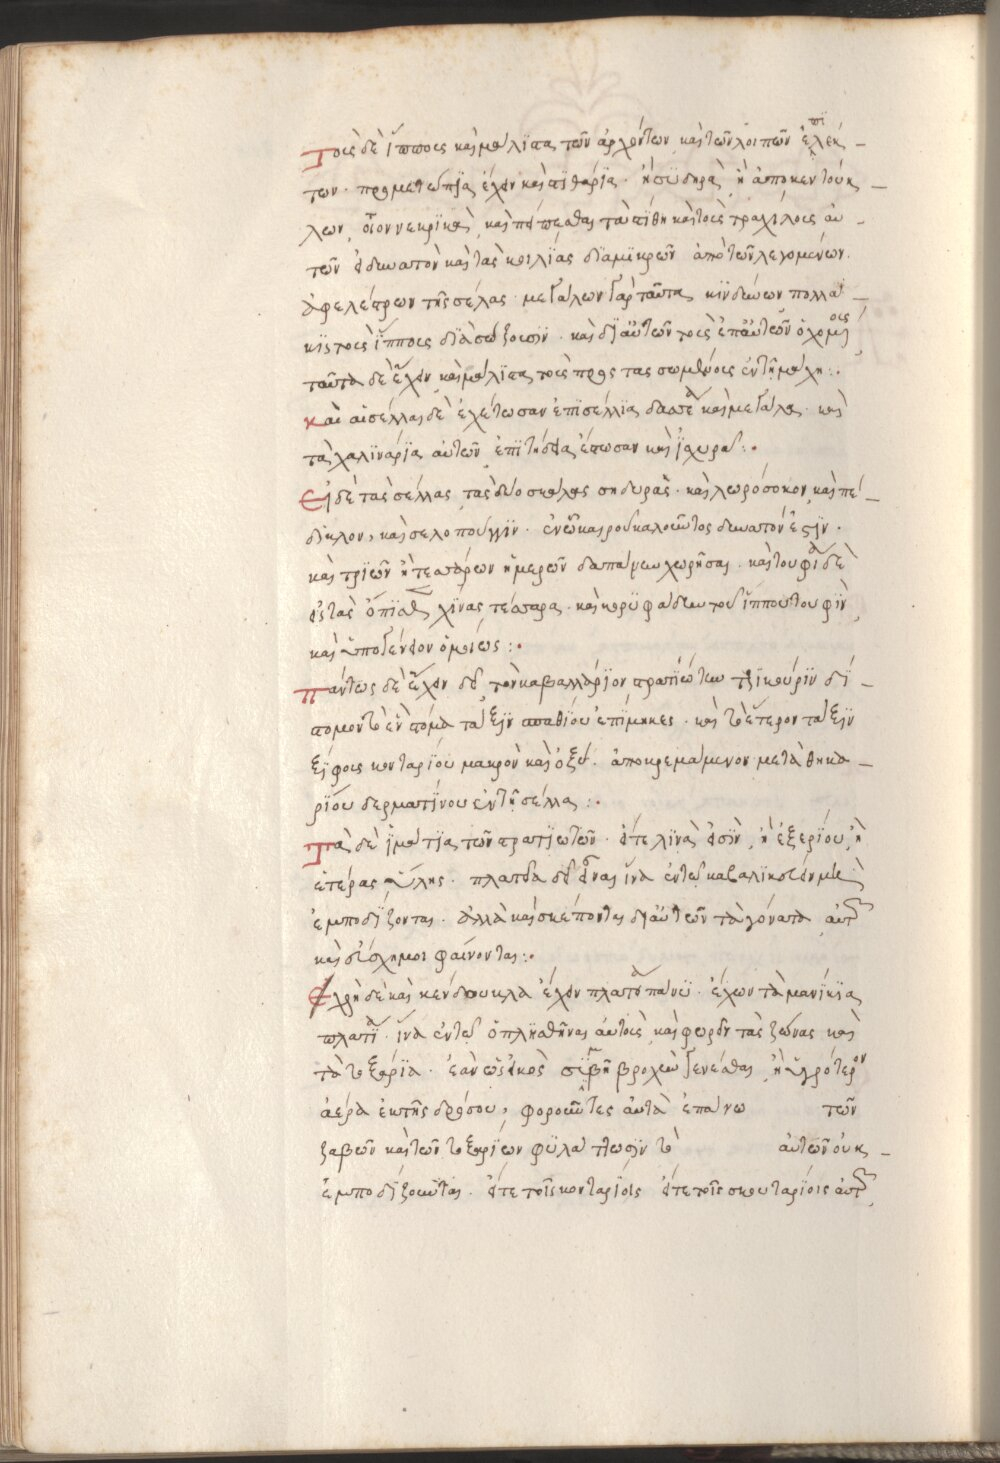 Τοὺς δὲ ἵππους καὶ μάλιστα τῶν ἀρχόντων καὶ τῶν λοιπῶν ἐπιλέκ
των. προμετωπίας ἔχειν καὶ στιθάρια. ἢ σϋδηρᾶ ἢ ἀπὸ κεντούκ
λων οἷον νευρικὰ καὶ σκέπεσθαι τὰ στίθη καὶ τοὺς τραχίλους αὐ
τῶν εἰ δυνατὸν καὶ τὰς κοιλίας διὰ μικρῶν ἀπὸ τῶν λεγομένων.
κρεμάστρων τῆς σέλας. μεγάλων γὰρ ταῦτα κινδύνων πολλά
κις τοὺς ἵππους διασώζουσιν. καὶ δι αὐτῶν τοὺς ἐπ αὐτῶν ὀχουμένους
ταῦτα δὲ ἔχειν καὶ μάλιστα τοὺς προστασσομένους ἐν τῆ μάχη :.
καὶ αἱ σέλλας δὲ ἐχέτωσαν ἐπισέλλια δασέα καὶ μεγάλα. καὶ
τὰ χαλινάρια αὐτῶν ἐπιτήδεια ἔστωσαν καὶ ἰσχυρά :.
Εἰ δὲ τὰς σέλλας τὰς δύο σκάλας σηδυρᾶς. καὶ λωρόσοκον καὶ πέ
δικλον, καὶ σελοπούγγιν. ἐν ὧ καιροῦ καλοῦντος δυνατόν ἐστιν.
καὶ τριῶν ἢ τεσσάρων ἡμερῶν δαπάνην χωρῆσαι. καὶ τουφία δὲ
εἰς τὰς ὀπισθ χίνας τέσσαρα. καὶ κορυφάδιν τοῦ ἵππου τουφὶν
καὶ ὑπογένειον ὁμοίως :.
πάντως δὲ ἔχειν δεῖ τὸν καβαλλάριον στρατιώτην τζικούριν δί
στομον τὸ ἓν στόμα τάξιν σπαθίου ἐπίμηκες. καὶ τὸ ἕτερον τάξιν
ξίφους κονταρίου μακρὸν καὶ ὀξύ. ἀποκρεμάμενον μετὰ θηκα
ρίου δερματίνου ἐν τῆ σέλλα :.
Τὰ δὲ ἱμάτια τῶν στρατιωτῶν. εἴτε λινὰ εἰσὶν ἢ ἐξερίου ἢ
ἑτέρας ὕλης. πλατέα δεῖ εἶναι ἵνα ἐν τῷ καβαλικεύειν μὴ
ἐμποδίζονται. ἀλλὰ καὶ σκέπονται δι αὐτῶν τὰ γόνατα αὐτ
καὶ εὔσχημοι φαίνονται :.
Ἐχρὴ δὲ καὶ κένδουκλα ἔχειν πλατέα πάνυ. ἔχων τὰ μανίκια
πλατέα. ἵνα ἐν τῷ ὁπλισθῆναι αὐτοὺς καὶ φορεῖν τὰς ζώνας καὶ
τὰ τοξάρια. ἐὰν ὡς εἰκὸς συμβῆ βροχὴν γενέσθαι ἢ ὑγρότερον
ἀέρα ἐκ τῆς δρόσου, φοροῦντες αὐτὰ ἐπάνω τῶν
ζαβῶν καὶ τῶν τοξαρίων φυλάττωσιν τὸ αὐτῶν οὐκ
ἐμποδίζονται. εἴτε τοῖς κονταρίοις εἴτε τοῖς σκουταρίοις αὐτ